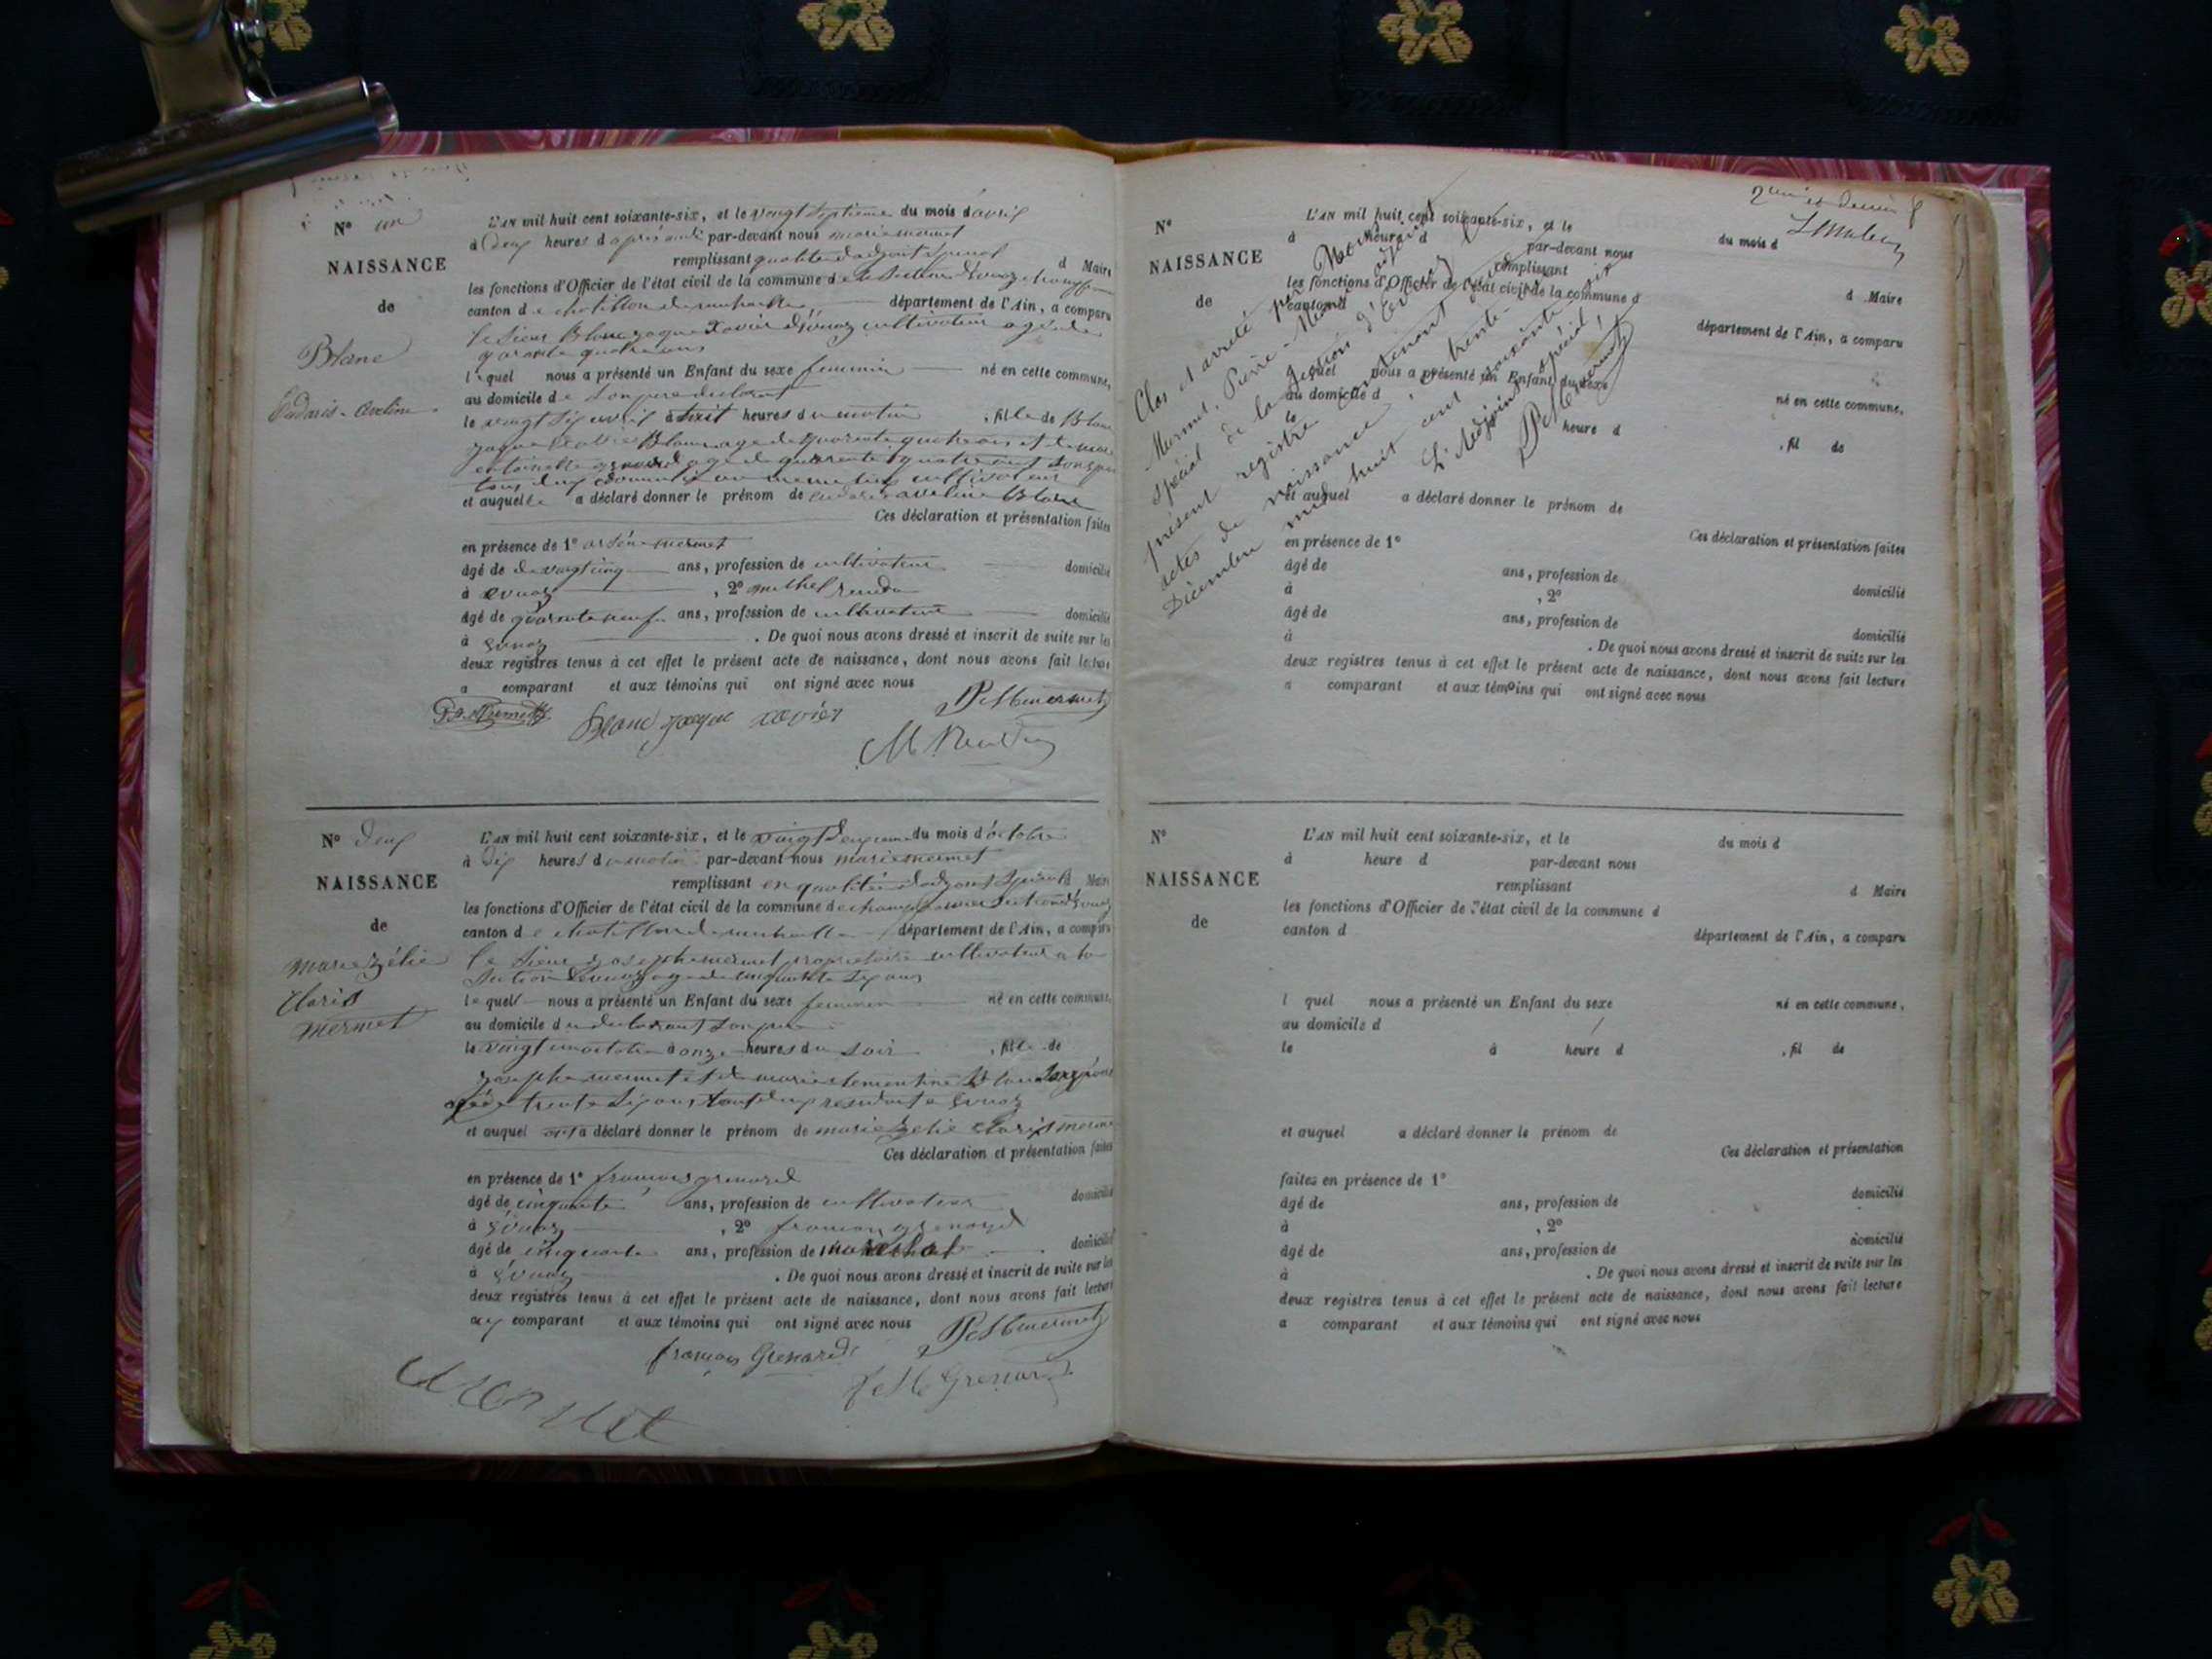 N° un
NAISSANCE
de
Blanc
L'AN mil huit cent soixante-six, et le vingt septieme du mois d'avril
à deux heures d par-devant nous marie mermet
remplissant d Maire
les fonctions d'Officier de l'état civil de la commune d
canton de département de l'Ain, a comparu
le sieur Blanc jaque xavier d'évuaz cultivateur agé de
quarante quatre ans
lequel nous a présenté un Enfant du sexe feminin né en cette commune,
au domicile de son pere declarant
le vingt six avril à huit heures du matin , fille de Blanc
jaque xavier Blanc age de quarante quatre ans et de
age de quarante quatre ans
cultivateur
et auquelle a déclaré donner le prénom de aveline Blanc
Ces déclaration et présentation faites
en présence de 1° mermet
âgé de de vingt cinq ans, profession de cultivateur domicilié
à evuaz , 2° michel
âgé de quarante neuf ans, profession de cultivateur domicilié
à Evuaz . De quoi nous avons dressé et inscrit de suite sur les
deux registres tenus à cet effet le présent acte de naissance, dont nous avons fait lecture
a comparant et aux témoins qui ont signé avec nous
Blanc jaque xavier
N° deux
NAISSANCE
de
marie zélie
Claris
mermet
L'AN mil huit cent soixante-six, et le vingt deuxieme du mois d'octobre
à dix heures du matin par-devant nous marie mermet
remplissant en qualité d'adjoint spécial d Maire
les fonctions d'Officier de l'état civil de la commune de champfromier section d'évuaz
canton de département de l'Ain, a comparu
le sieur joseph mermet proprietaire cultivateur a la
section d'evuaz age de cinquante six ans
lequel nous a présenté un Enfant du sexe feminin né en cette commune,
au domicile du declarant son pere
le vingt un octobre à onze heures du soir , fille de
joseph mermet et de marie clementine Blanc
agée de trente six ans tous deux residant a Evuaz
et auquel a déclaré donner le prénom de marie zelie claris mermet
Ces déclaration et présentation faites
en présence de 1° francois grenard
âgé de cinquante ans, profession de cultivateur domicilié
à Evuaz , 2° francois grenard
âgé de cinquante ans, profession de marechal domicilié
à Evuaz . De quoi nous avons dressé et inscrit de suite sur les
deux registres tenus à cet effet le présent acte de naissance, dont nous avons fait lecture
aux comparant et aux témoins qui ont signé avec nous
françois Grenard
Grenard
2eme et dernier f
N°
NAISSANCE
de
L'AN mil huit cent soixante-six, et le du mois d
à heure d par-devant nous
remplissant d Maire
les fonctions d'Officier de l'état civil de la commune d
canton d département de l'Ain, a comparu
lequel nous a présenté un Enfant du sexe né en cette commune,
au domicile d
le heure d , fil de
et auquel a déclaré donner le prénom de
Ces déclaration et présentation faites
en présence de 1°
âgé de ans, profession de domicilié
à , 2°
âgé de ans, profession de domicilié
à . De quoi nous avons dressé et inscrit de suite sur les
deux registres tenus à cet effet le présent acte de naissance, dont nous avons fait lecture
a comparant et aux témoins qui ont signé avec nous
Clos et arrêté par Nous
Mermet, Pierre-Marie adjoint
spécial de la section d'Evuaz
présent registre contenant deux
actes de naissance, trente-
Décembre mil huit cent soixante six
L'Adjoint spécial,
N°
NAISSANCE
de
L'AN mil huit cent soixante-six, et le du mois d
à heure d par-devant nous
remplissant d Maire
les fonctions d'Officier de l'état civil de la commune d
canton d département de l'Ain, a comparu
l quel nous a présenté un Enfant du sexe né en cette commune,
au domicile d
le à heure d , fil de
et auquel a déclaré donner le prénom de
Ces déclaration et présentation
faites en présence de 1°
âgé de ans, profession de domicilié
à , 2°
âgé de ans, profession de domicilié
à . De quoi nous avons dressé et inscrit de suite sur les
deux registres tenus à cet effet le présent acte de naissance, dont nous avons fait lecture
a comparant et aux témoins qui ont signé avec nous